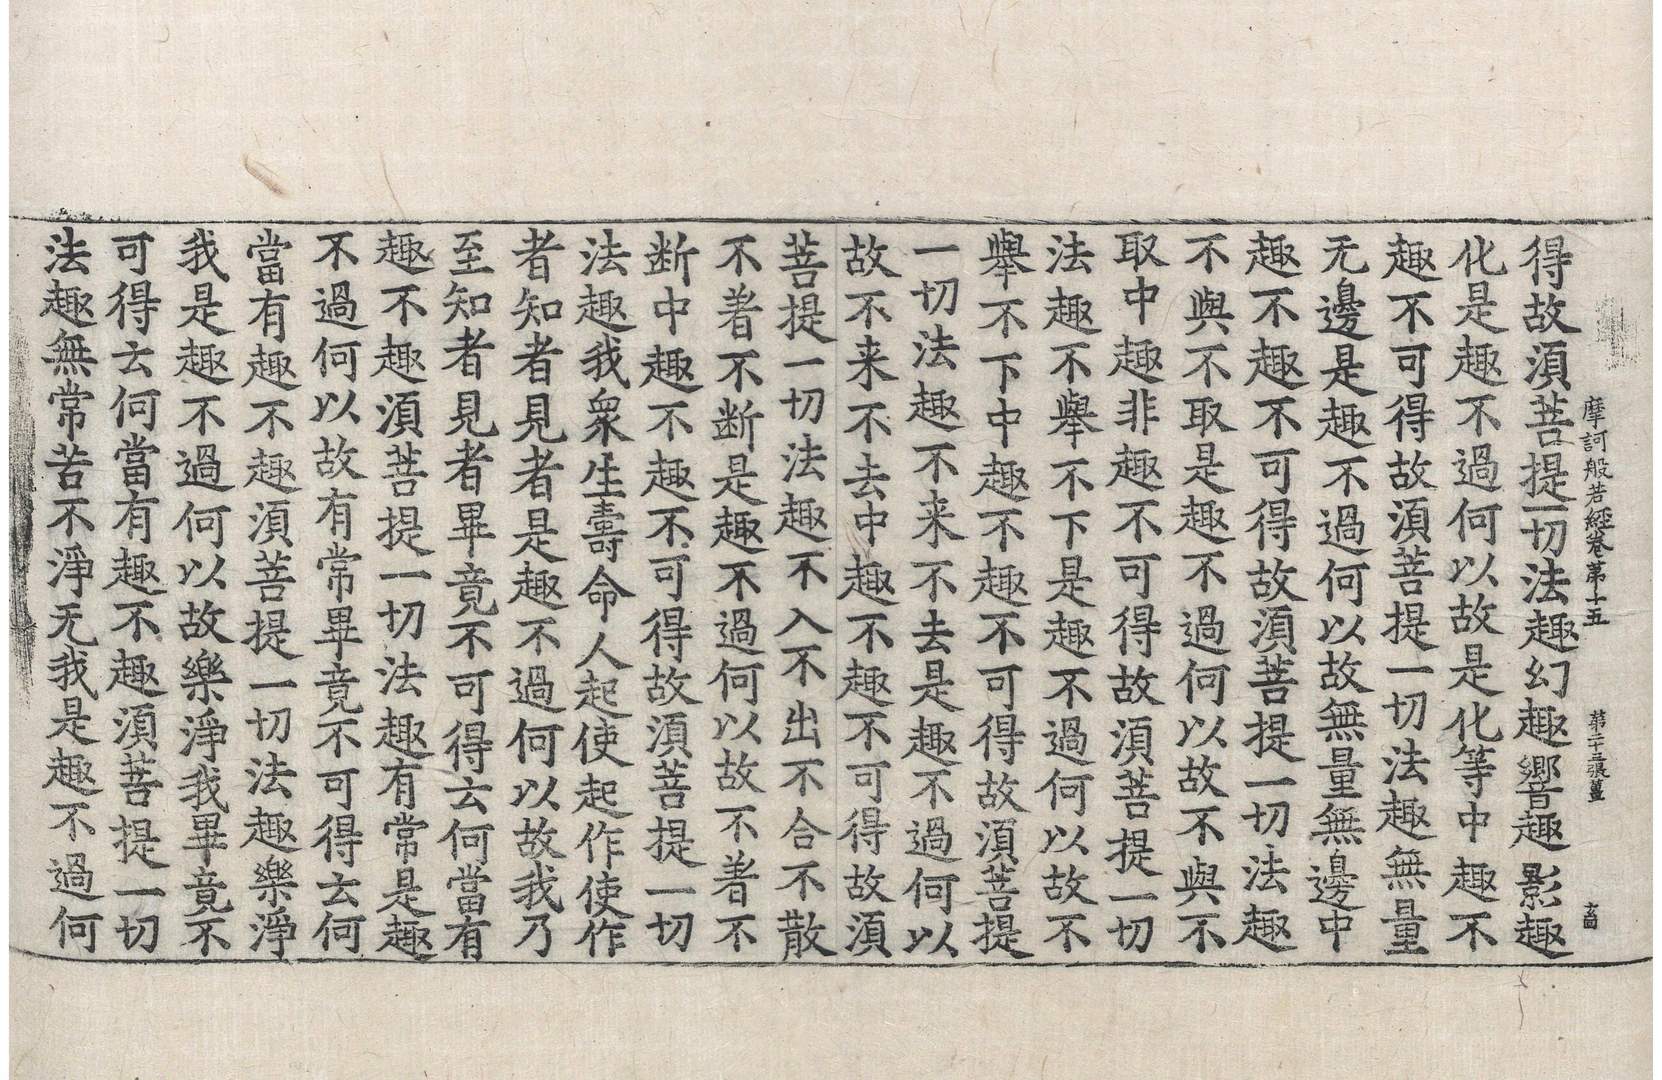 摩訶般若經卷第十五 第二十三張薑
得故湏菩提一切法趣幻趣響趣影趣
化是趣不過何以故是化等中趣不
趣不可得故湏菩提一切法趣無量
无邊是趣不過何以故無量無邊中
趣不趣不可得故湏菩提一切法趣
不與不取是趣不過何以故不與不
取中趣非趣不可得故湏菩提一切
法趣不舉不下是趣不過何以故不
舉不下中趣不趣不可得故湏菩提
一切法趣不来不去是趣不過何以
故不来不去中趣不趣不可得故湏
菩提一切法趣不入不出不合不散
不著不断是趣不過何以故不著不
断中趣不趣不可得故湏菩提一切
法趣我衆生壽命人起使起作使作
者知者見者是趣不過何以故我乃
至知者見者畢竟不可得云何當有
趣不趣湏菩提一切法趣有常是趣
不過何以故有常畢竟不可得云何
當有趣不趣湏菩提一切法趣樂淨
我是趣不過何以故樂淨我畢竟不
可得云何當有趣不趣湏菩提一切
法趣無常苦不淨无我是趣不過何